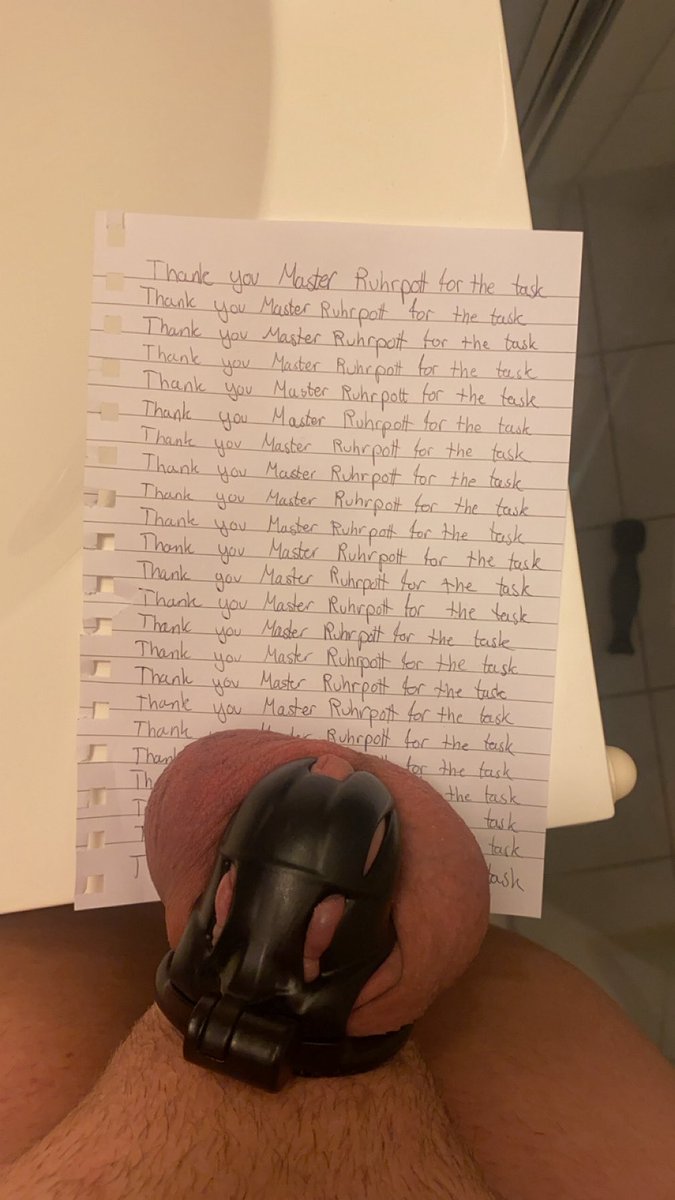 Thank you Master Ruhrpott for the task
Thank you Master Ruhrpott for the task
Thank you Master Ruhrpott for the task
Thank you Master Ruhrpott for the task
Thank you Master Ruhrpott for the task
Thank you Master Ruhrpott for the task
Thank you Master Ruhrpott for the task
Thank you Master Ruhrpott for the task
Thank you Master Ruhrpott for the task
Thank you Master Ruhrpott for the task
Thank you Master Ruhrpott for the task
Thank you Master Ruhrpott for the task
Thank you Master Ruhrpott for the task
Thank you Master Ruhrpott for the task
Thank you Master Ruhrpott for the task
Thank you Master Ruhrpott for the task
Thank you Master Ruhrpott for the task
Thank Ruhrpott for the task
Thank for the task
Th the task
T task
task
T task